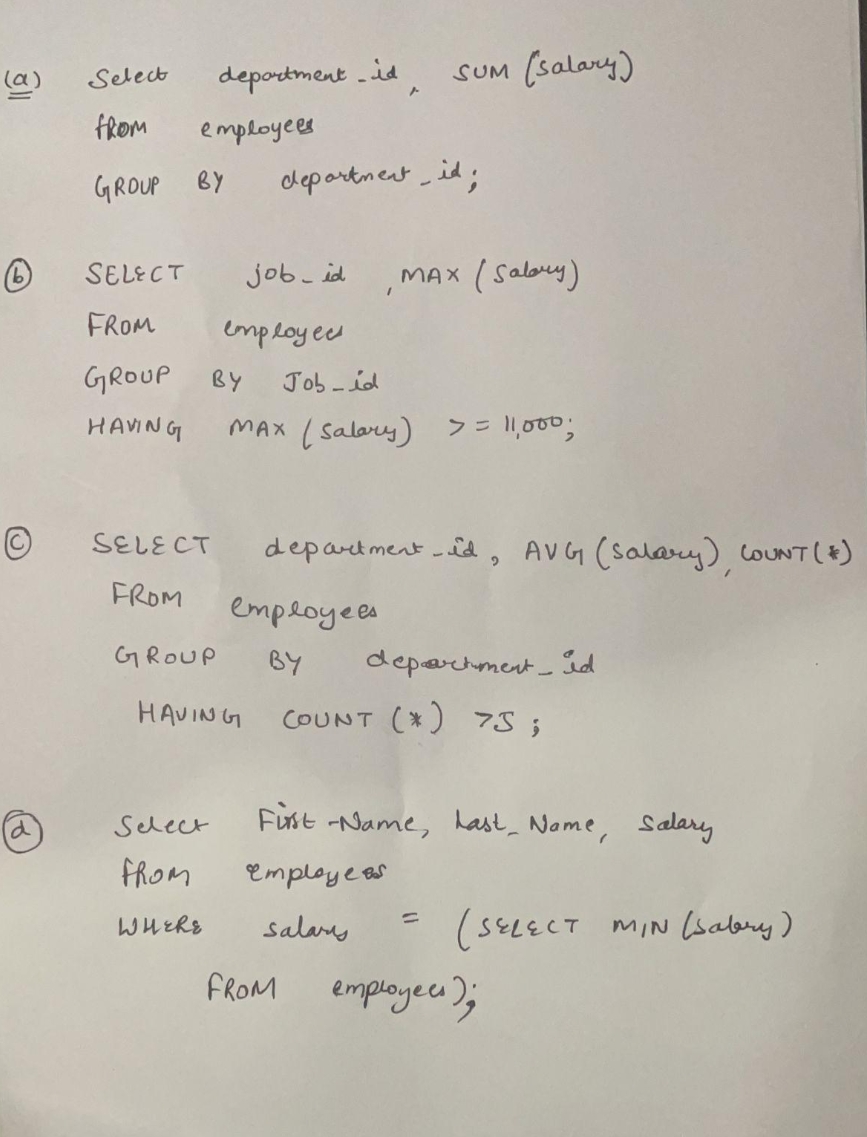 (a) Select department_id, SUM (salary)
from employees
GROUP BY department_id;
(b) SELECT job_id, MAX (salary)
FROM employees
GROUP BY Job_id
HAVING MAX (salary) >= 11,000;
(c) SELECT department_id, AVG (salary), COUNT (*)
FROM employees
GROUP BY department_id
HAVING COUNT (*) >5;
(d) Select First-Name, Last_Name, salary
from employees
WHERE salary = (SELECT MIN (salary)
FROM employees);